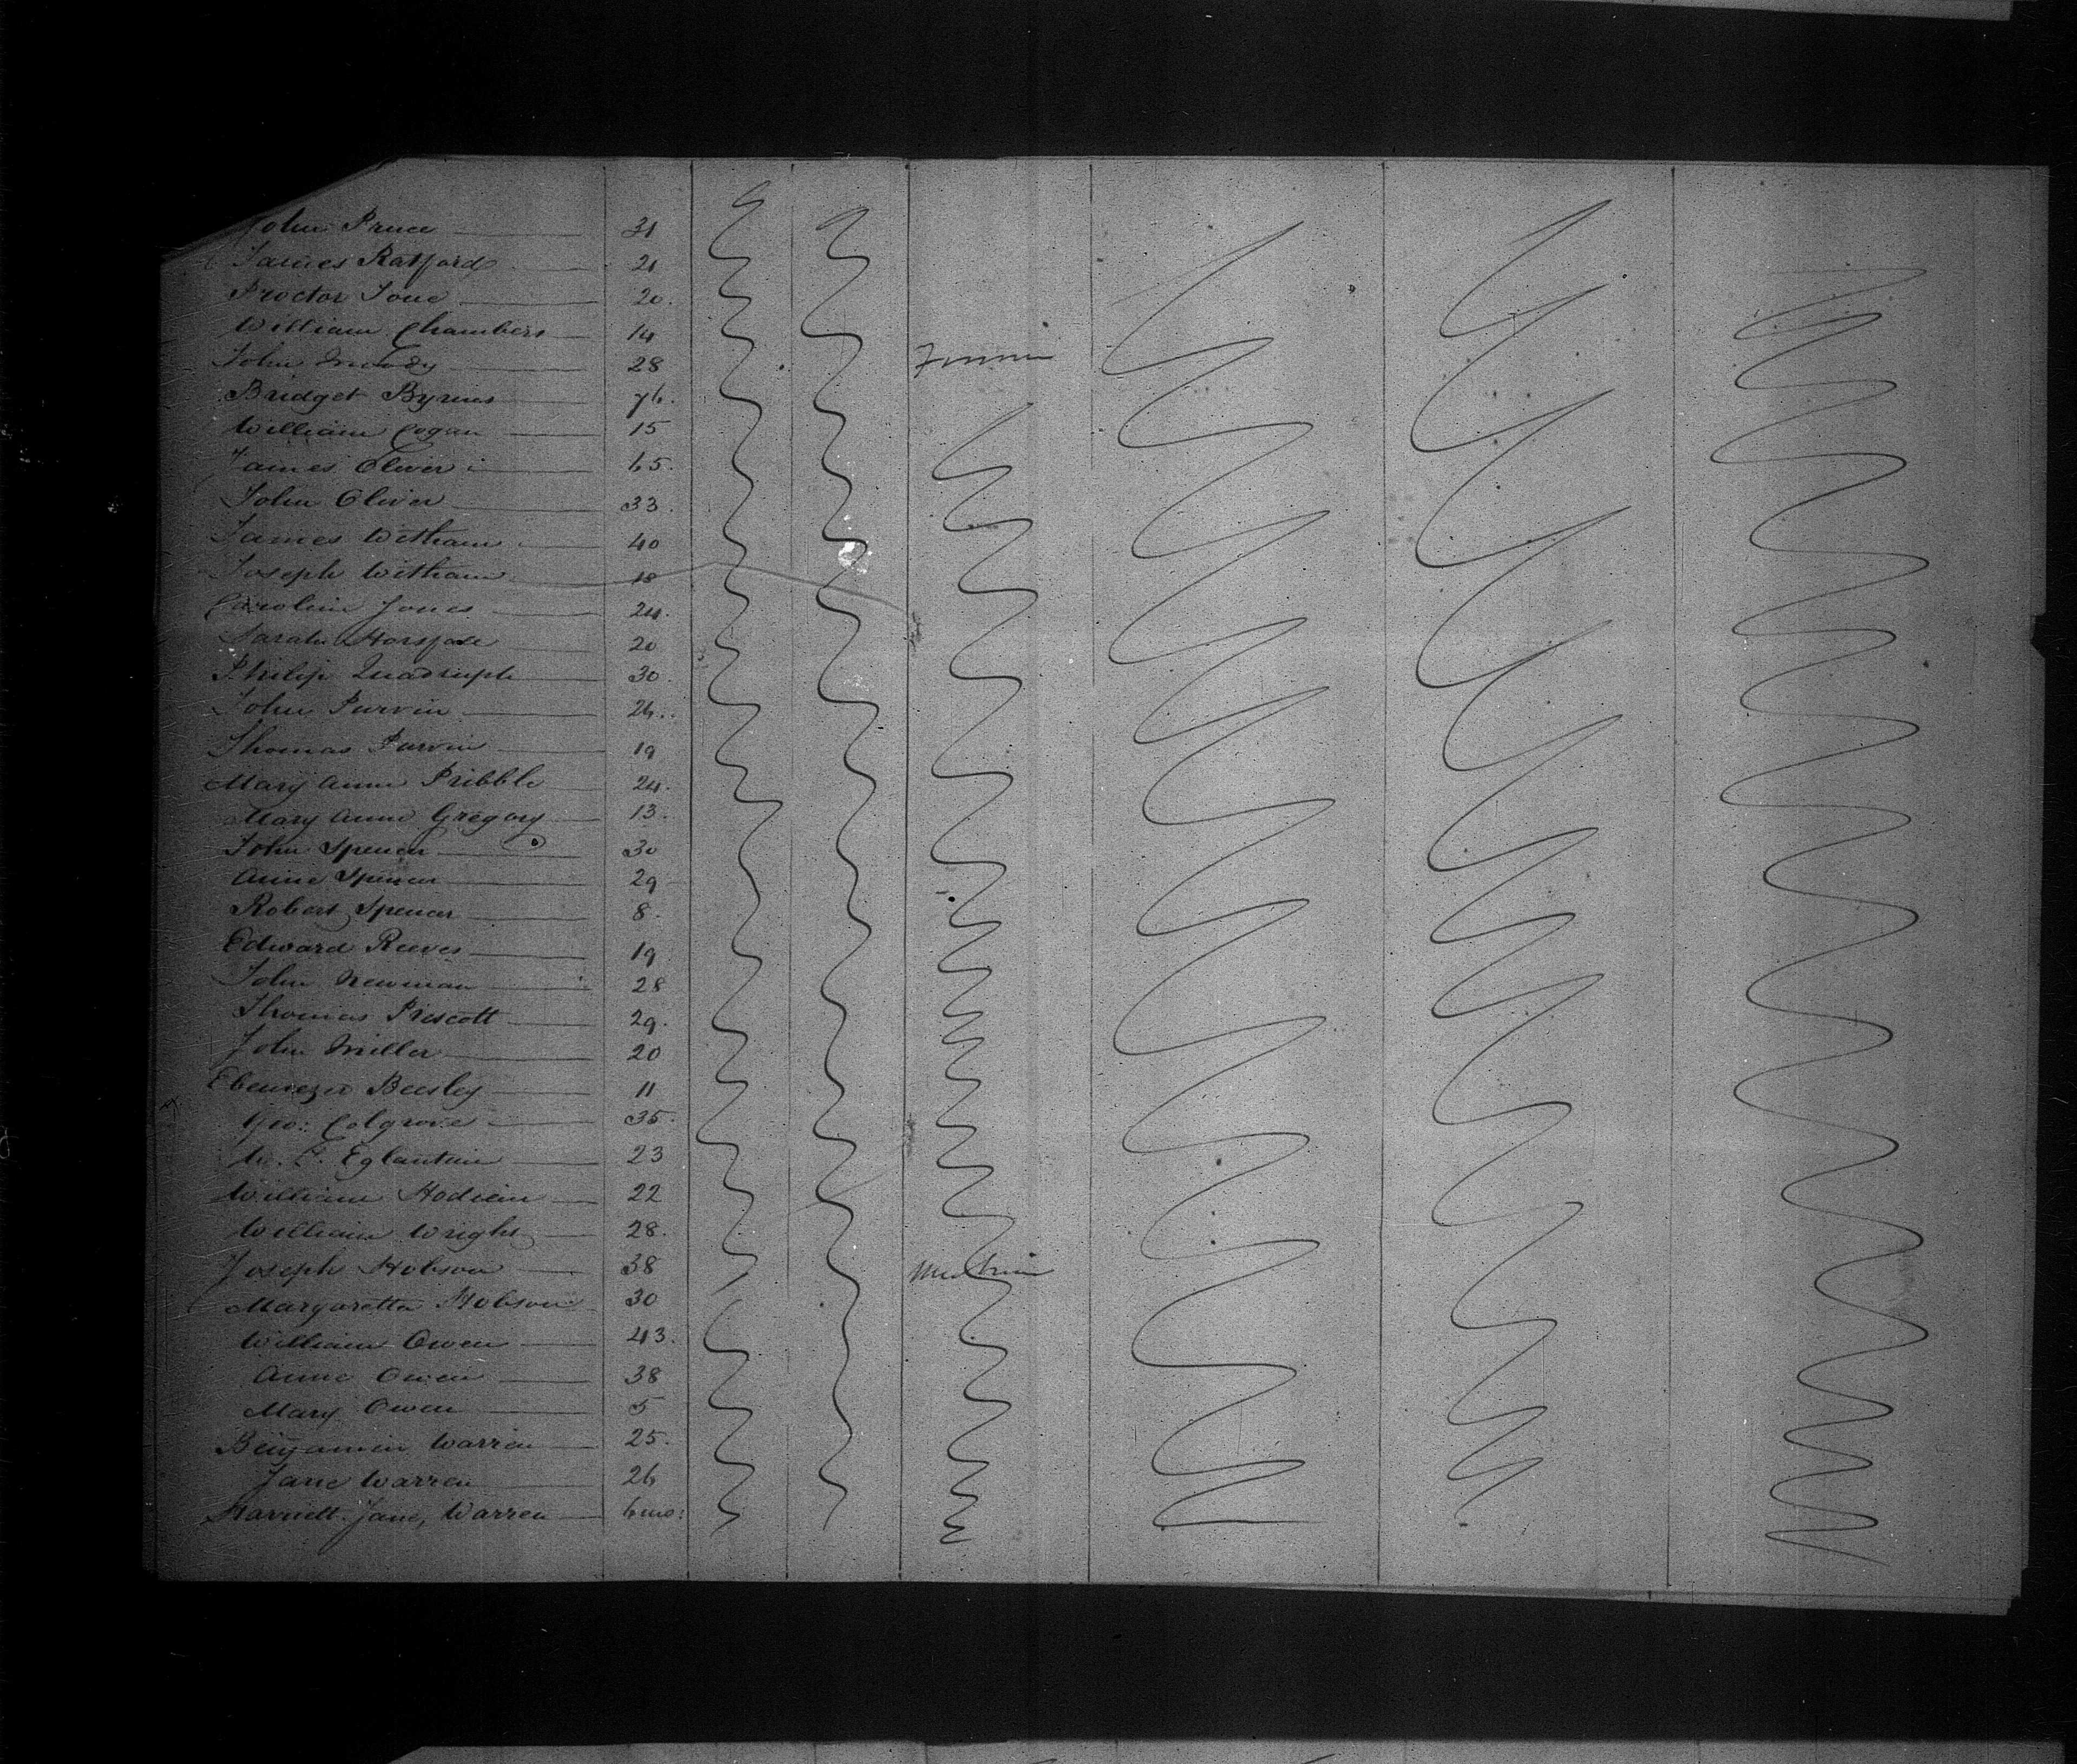 John Pruce 31
James Ratford 21
Proctor Tone 20.
William Chambers 14
John Moody 28
Bridget Byrnes 76.
William Cogan 15
James Oliver 65.
John Oliver 33.
James Witham 40
Joseph Witham 18
Caroline Jones 24.
Sarah 20
Philip 30.
John Purvin 26..
Thomas Purvin 19
Mary Anne Pribble 24.
Mary Anne Gregory 13.
John Spencer 30
Anne Spencer 29
Robert Spencer 8.
Edward Reeves 19
John Newman 28
Thomas Priscott 29.
John Miller 20
Ebenezer Beesley 11
Geo: Colgrove 35.
Eglantine 23
William 22
William Wright 28.
Joseph Hobson 38
Margaretta Hobson 30
William Owen 43.
Anne Owen 38
Mary Owen 5
Benjamin Warren 25.
Jane Warren 26
Harriett Jane, Warren 6 mo: